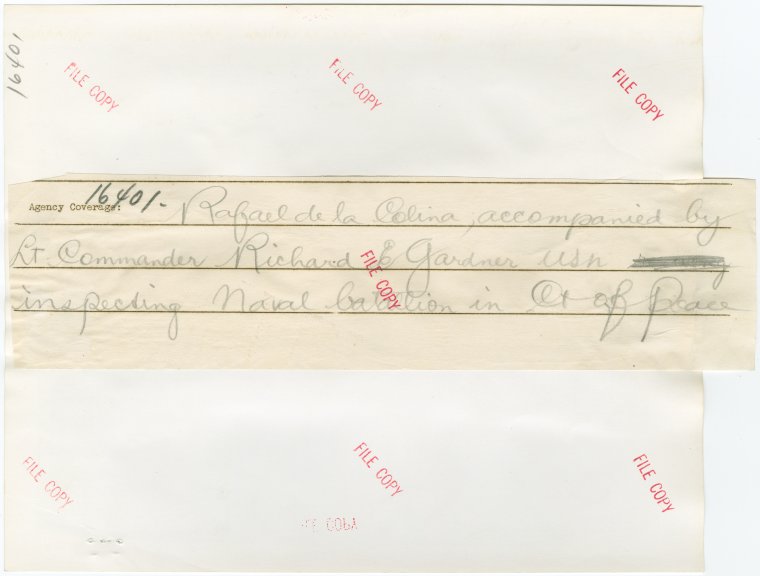 16401
FILE COPY
FILE COPY
FILE COPY
Agency Coverage: 16401- Rafael de la Colina, accompanied by
Lt. Commander Richard E Gardner USN
inspecting Naval batallion in Ct of Peace
FILE COPY
FILE COPY
FILE COPY
FILE COPY